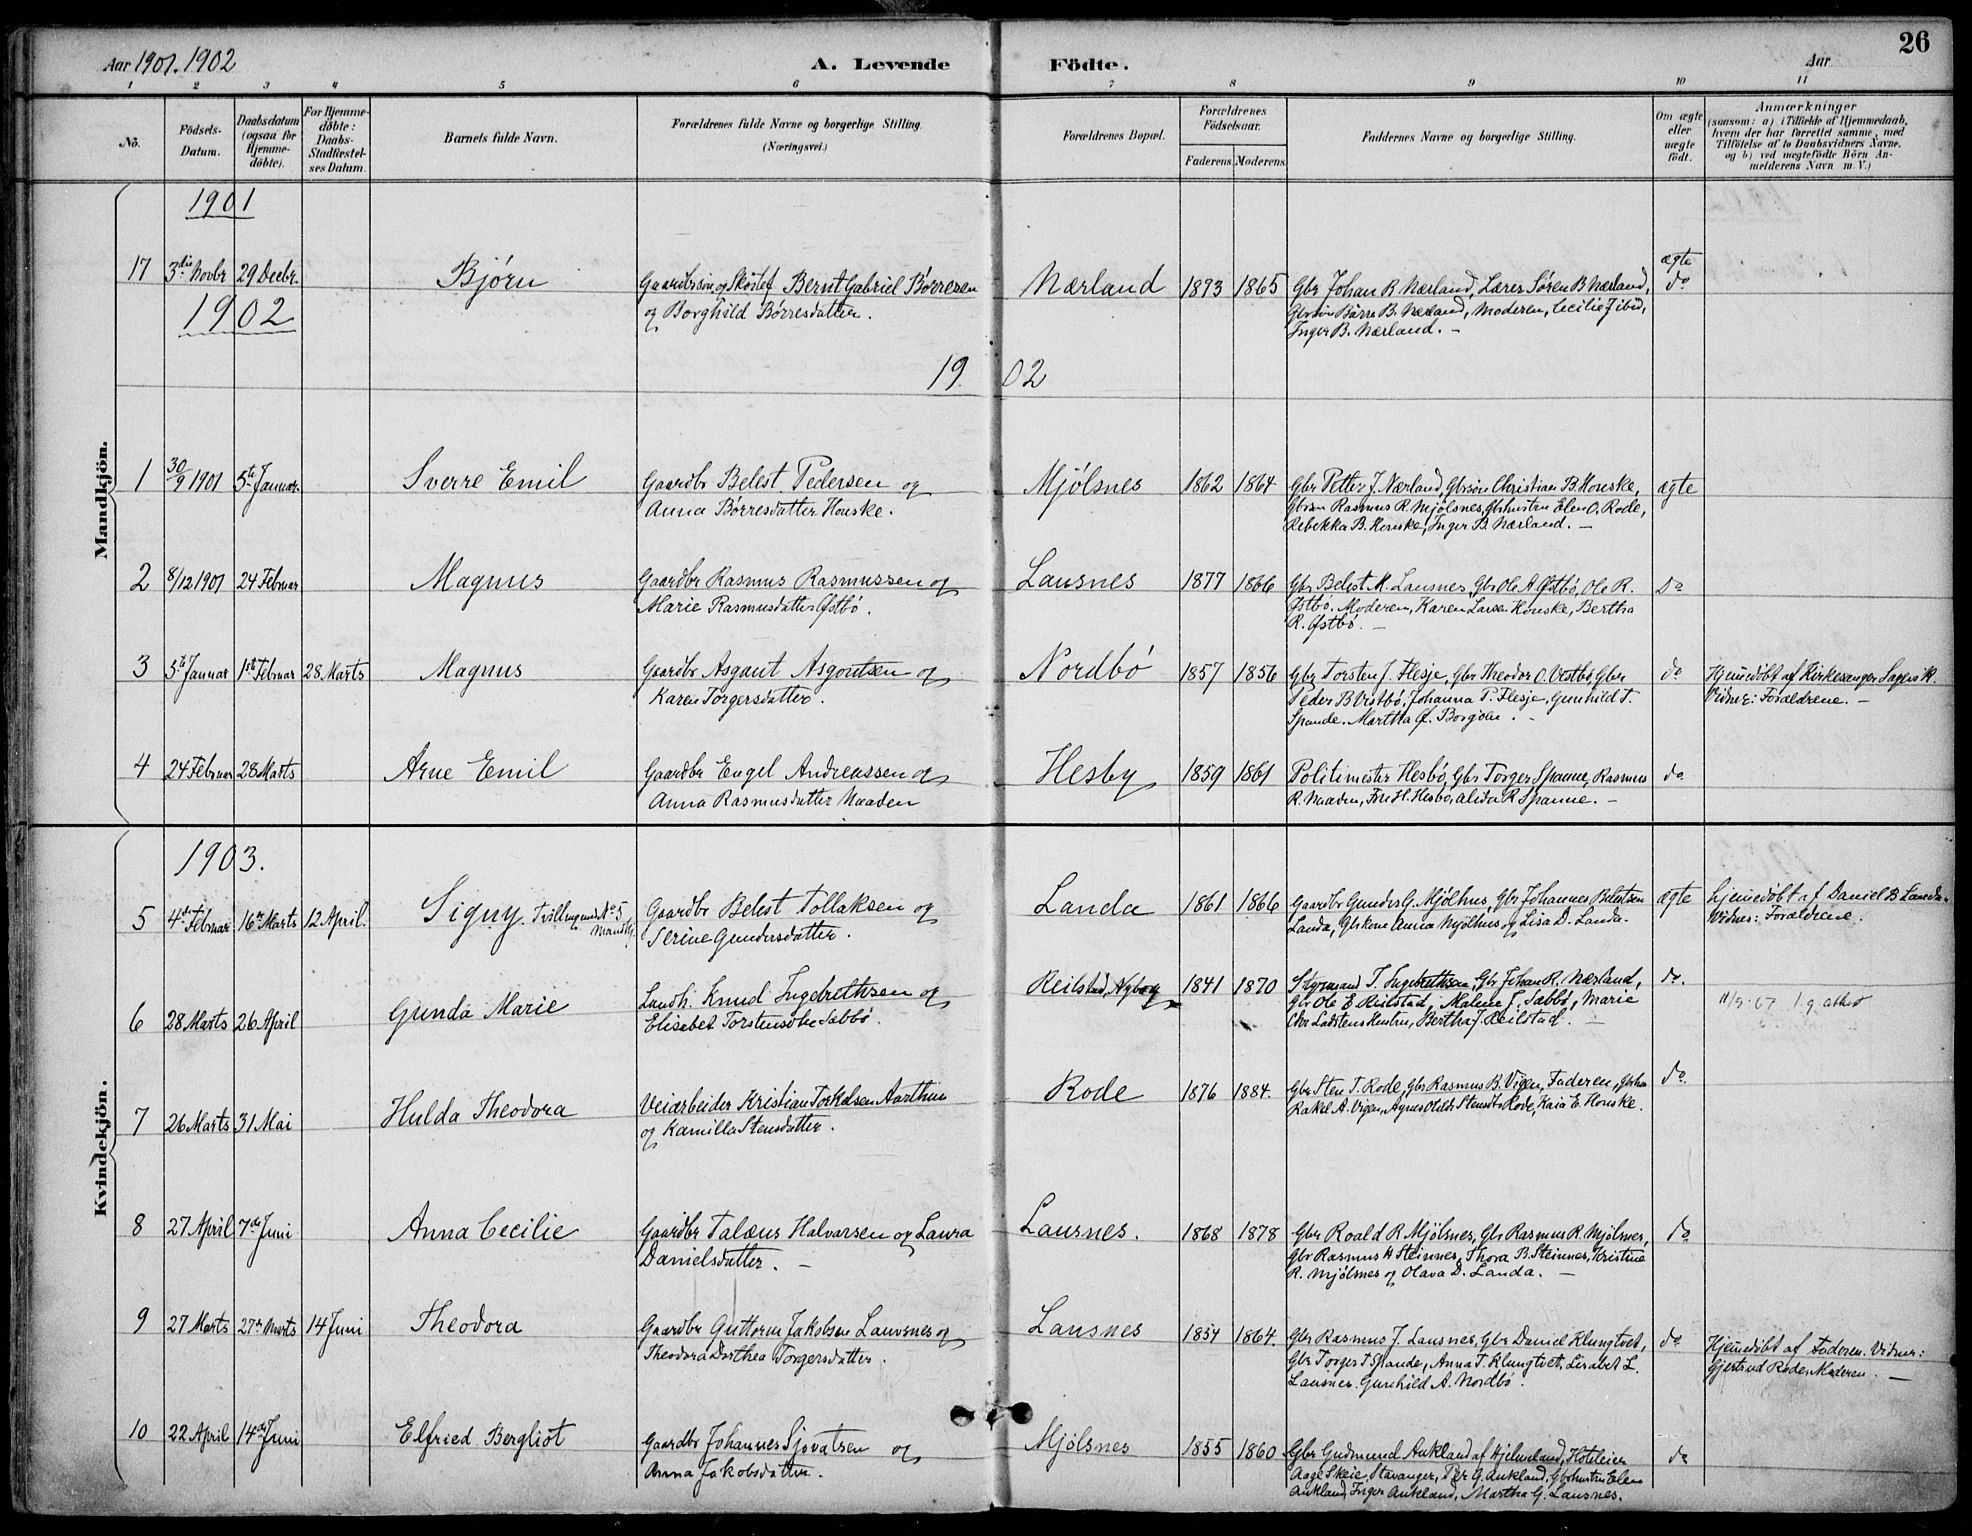 Aar 1901. 1902
A. Levende Födte.
Aar
26
1 2 3 4 5 6 7 8 9 10 11
No.
Födsels-Datum.
Daabsdatum (ogsaa for Hjemme-döbte).
For Hjemme-döbte: Daabs-Stadfæstel-ses Datum.
Barnets fulde Navn.
Forældrenes fulde Navne og borgerlige Stilling.
(Næringsvei.)
Forældrenes Bopæl.
Forældrenes Födselsaar.
Faderens. Moderens.
Faddernes Navne og borgerlige Stilling.
Om ægte eller uægte födt.
Anmærkninger
(saasom: a) i Tilfælde af Hjemmedaab,
hvem der har forrettet samme, med
Tilföielse af to Daabsvidners Navne.
og b) ved uægtefödte Börn An-
melderens Navn m.V.)
Mandkjön.
1901
17 3die Novbr 29 Decbr. Bjørn Gaardbrsøn, Bernt Gabriel Børresen Nærland 1873 1865 Gbr Johan R. Nærland, Lærer Søren B Nærland, ægte do
og Borghild Børresdatter. Børre B. Nærland, Moderen, Cecilie J ibid,
Inger B. Nærland. –
1902
1902
1 30/9 1901 5te Januar. Sverre Emil Gaardbr Belest Pedersen og Mjølsnes 1862 1864 Gbr Petter J. Nærland, Gbrsøn Christian B. Houske, ægte
Anna Børresdatter Houske. Gbrsøn Rasmus R. Mjølsnes, Gbrhustru Elen O. Rode,
Rebekka B. Houske, Inger B. Nærland. –
2 8/12 1901 24 Februar Magnus Gaardbr Rasmus Rasmussen og Lausnes 1877 1866 Gbr Belest M. Lausnes, Gbr Ole A Østbø, Ole R. Do
Marie Rasmusdatter Østbø. Østbø. Moderen, Karen Larsen Houske, Bertha
R. Østbø. –
3 5te Januar 1ste Februar 28 Marts Magnus Gaardbr Asgaut Asgautsen og Nordbø 1857 1856 Gbr Torsten J. Flesje, Gbr Theodor O. Vestbø, Gbr do Hjemedøbt af Kirkesanger
Karen Torgersdatter. Peder B Vestbø, Johanna P. Flesje, Gunhild T. Vidner: Forældrene. –
Spande. Martha
4 24 Februar 28 Marts Arne Emil Gaardbr Engel Andreassen og Hesby 1859 1861 Politimester Hesbø, Gbr Torger Spanne, Rasmus do
Anna Rasmusdatter Naaden R. Naaden, H. Hesbø, Alida R Spanne. –
Kvindekjön.
1903.
5 4de Februar 16de Marts 12 April. Signy. Tvilling med No 5 Mandkj. Gaardbr Belest Tollaksen og Landa 1861 1866 Gaardbr Gunder G. Mjølhus, Gbr Johannes Belestsen ægte hjemedøbt af Daniel B Landa.
Serine Gundersdatter. Landa, Gbrkone Anna Mjølhus og Lisa D. Landa. Vidner: Forældrene.
6 28 Marts 26 April Gunda Marie Landh. Knud Ingebrethsen og Reilstad, Nyborg 1841 1870 Styrmand T. Ingebrethsen, Gbr Johan R. Nærland, do.
Elisabet Torstensdtr Sæbbø. Gbr Ole E Reilstad, Malene J. Sæbbø, Marie
Hustru, Bertha J. Reilstad. – 11/9 67 l.g. attest
7 26 Marts 31 Mai Hulda Theodora Veiarbeider Kristian Torkelsen Aarthun Rode 1876 1884. Gbr Sten T. Rode, Gbr Rasmus B. Vigen, Faderen, do
og Kamilla Stensdatter. Rakel A. Vigen, Agnes Stensdtr Rode, Kaia E. Houske.
8 27 April 7de Juni Anna Cecilie Gaardbr Talæus Halvarsen og Laura Lausnes. 1868 1878 Gbr Roald R. Mjølsnes, Gbr Rasmus R. Mjølsnes, do
Danielsdatter. – Gbr Rasmus H Steinnes, Thora B. Steinnes, Kristine
R. Mjølsnes og Olava D. Landa. –
9 27 Marts 27de Marts 14 Juni Theodora Gaardbr Guttorm Jakobsen Lausnes og Lausnes 1854 1864. Gbr Rasmus J. Lausnes, Gbr Daniel Klungtvet, do Hjemedøbt af Faderen. Vidner:
Theodora Dorthea Torgersdatter. Gbr Torger T. Spande, Anna T. Klungtvet, Lisabet L. Gjertrud Rode, Moderen. –
Lausnes. Gunhild A. Nordbø.
10 22 April 14de Juni Elfried Bergliot Gaardbr Johannes Sjovatsen og Mjølsnes 1855 1860 Gbr Gudmund Aukland af Hjelmeland, Hoteleier do
Anna Jakobsdatter. Aage Skeie, Stavanger, Per G. Aukland, Gbrhustru Elen
Aukland, Inger Aukland, Martha G. Lausnes.